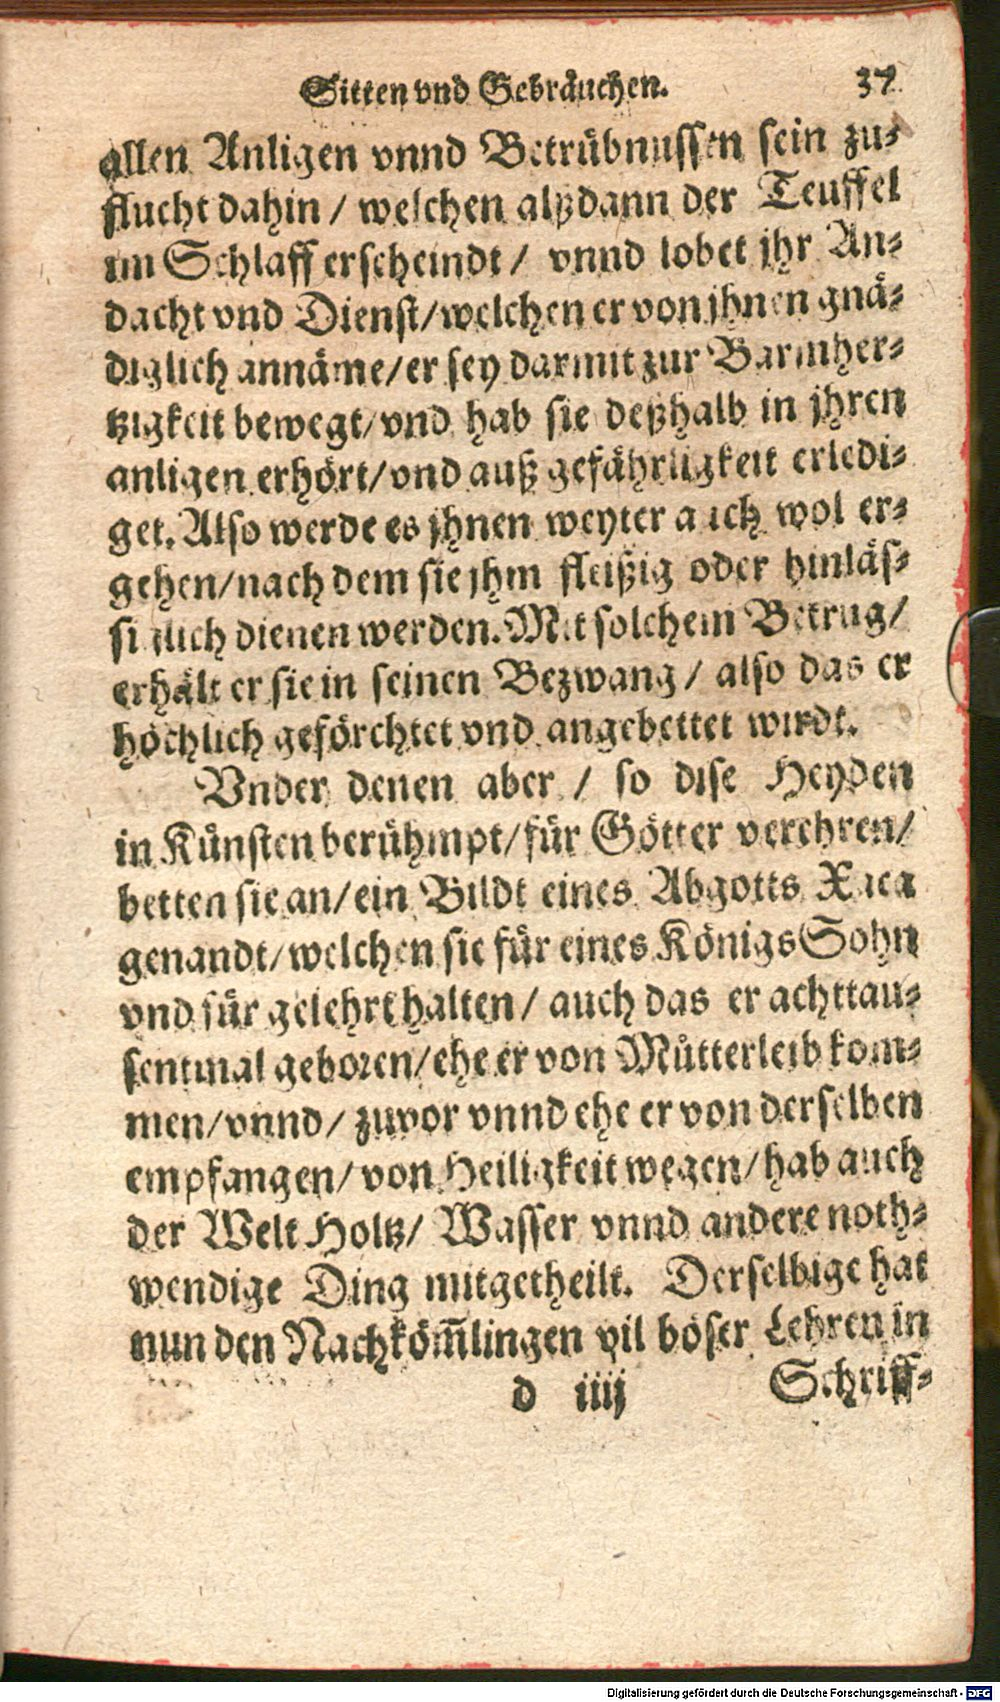 Sitten vnd Gebräuchen. 37
allen Anligen vnnd Betrübnussen sein zu-
flucht dahin / welchen alßdann der Teuffel
im Schlaff erscheindt / vnnd lobet jhr An-
dacht vnd Dienst/welchen er von jhnen gnä-
diglich annäme/er sey darmit zur Barmher-
tzigkeit bewegt/vnd hab sie deßhalb in jhren
anligen erhört/vnd auß gefährligkeit erledi-
get. Also werde es jhnen weyter auch wol er-
gehen/nach dem sie jhm fleißig oder hinläs-
siglich dienen werden. Mit solchem Betrug/
erhält er sie in seinen Bezwang / also das er
höchlich geförchtet vnd angebettet wirdt.
Vnder denen aber / so dise Heyden
in Künsten berühmpt/für Götter verehren/
betten sie an/ein Bildt eines Abgotts Xaca
genandt/welchen sie für eines Königs Sohn
vnd für gelehrt halten / auch das er achttau-
sentmal geboren/ehe er von Mütterleib kom-
men/vnnd/ zuvor vnnd ehe er von derselben
empfangen/ von Heiligkeit wegen/hab auch
der Welt Holtz/ Wasser vnnd andere noth-
wendige Ding mitgetheilt. Derselbige hat
nun den Nachköm̃lingen vil böser Lehren in
d iiij Schriff-
Digitalisierung gefördert durch die Deutsche Forschungsgemeinschaft - DFG